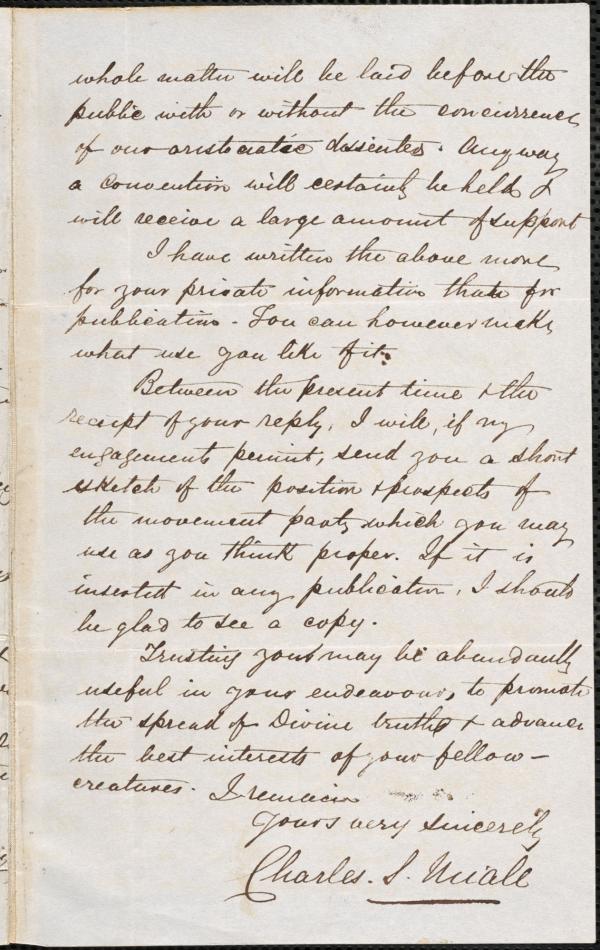 whole matter will be laid before the
public with or without the concurrence
of our aristocratic dissenters. Anyway
a convention will certainly be held &
will receive a large amount of support
I have written the above more
for your private information than for
publication - You can however make
what use you like of it.
Between the present time & the
receipt of your reply, I will, if my
engagements permit, send you a short
sketch of the position & prospects of
the movement party which you may
use as you think proper. If it is
inserted in any publication, I should
be glad to see a copy.
Trusting you may be abundantly
useful in your endeavours, to promote
the spread of Divine truth & advance
the best interests of your fellow-
creatures. I remain
Yours very sincerely
Charles. S. Miall